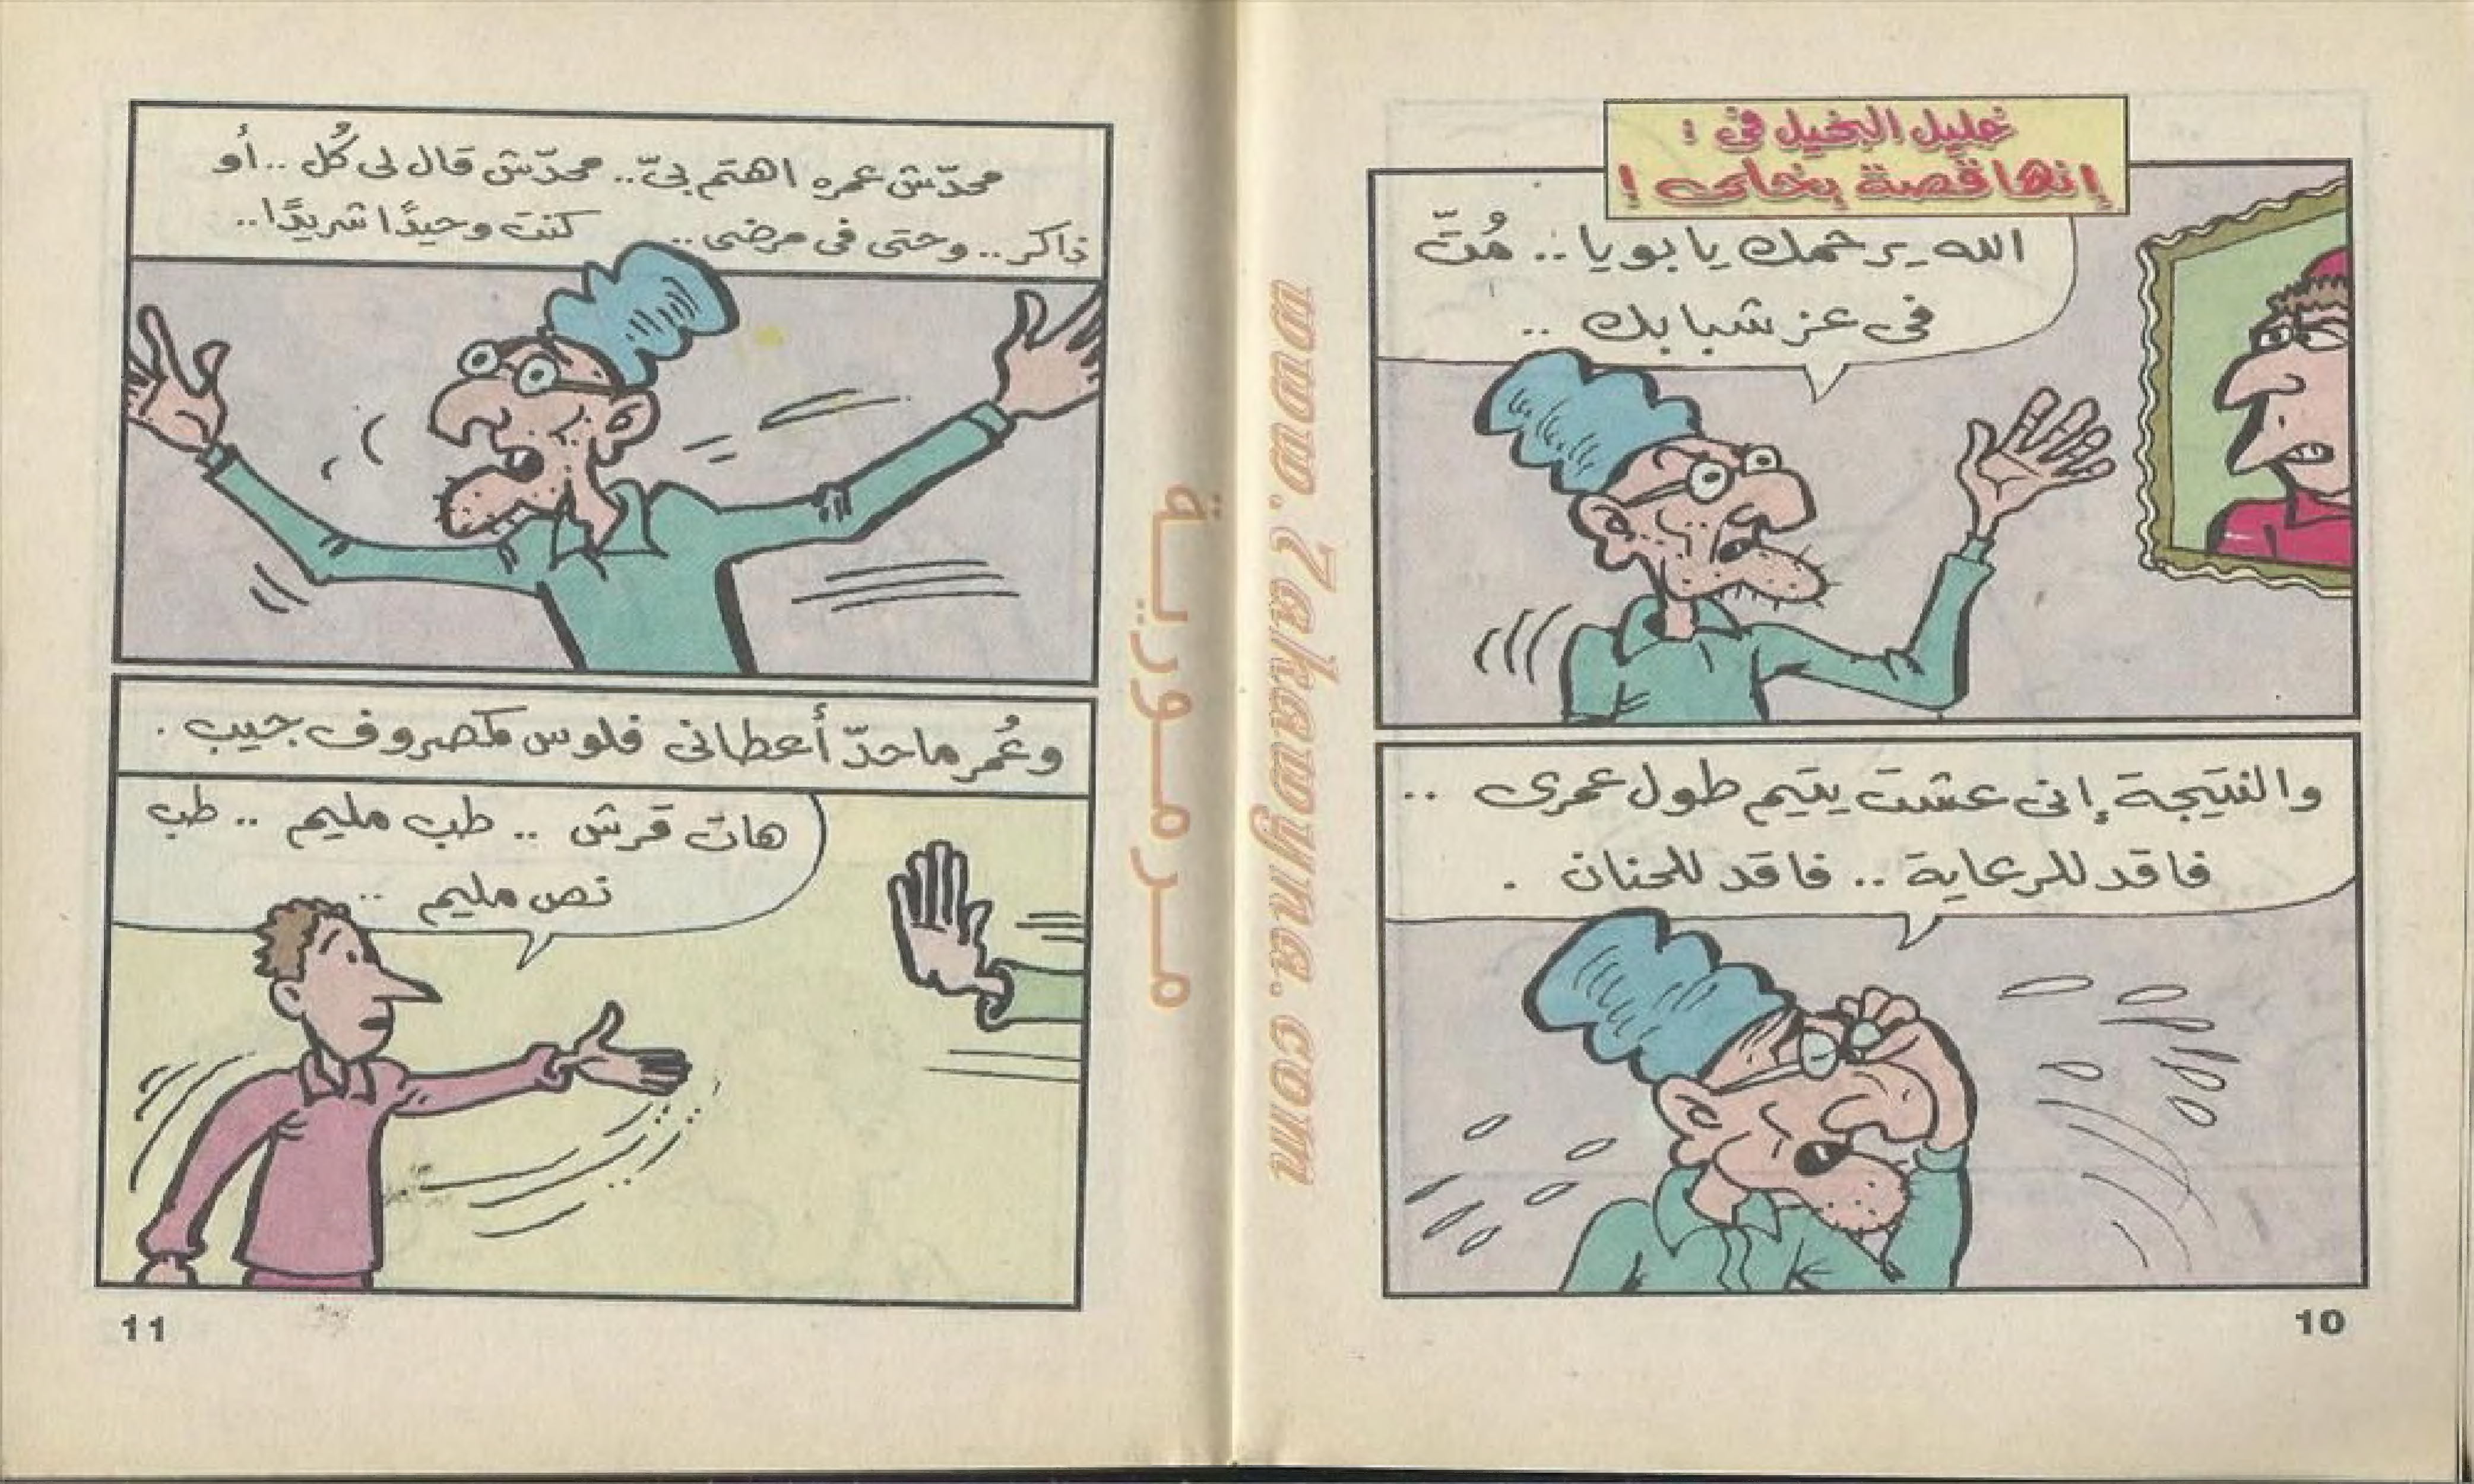 خليل البخيل فى :
إنها قصة بخلى !
الله يرحمك يا بويا .. مُتّ
فى عز شبابك ..
والنتيجة إنى عشت يتيم طول عمرى ..
فاقد للرعاية .. فاقد للحنان .
10
محدّش عمره اهتم بىّ .. محدّش قال لى كُل .. أو
ذاكر .. وحتى فى مرضى .. كنت وحيدًا شريدًا ..
وعُمر ما حدّ أعطانى فلوس كمصروف جيب .
هات قرش .. طب مليم .. طب
نص مليم ..
11
مرمورية
www.Zakawyna.com